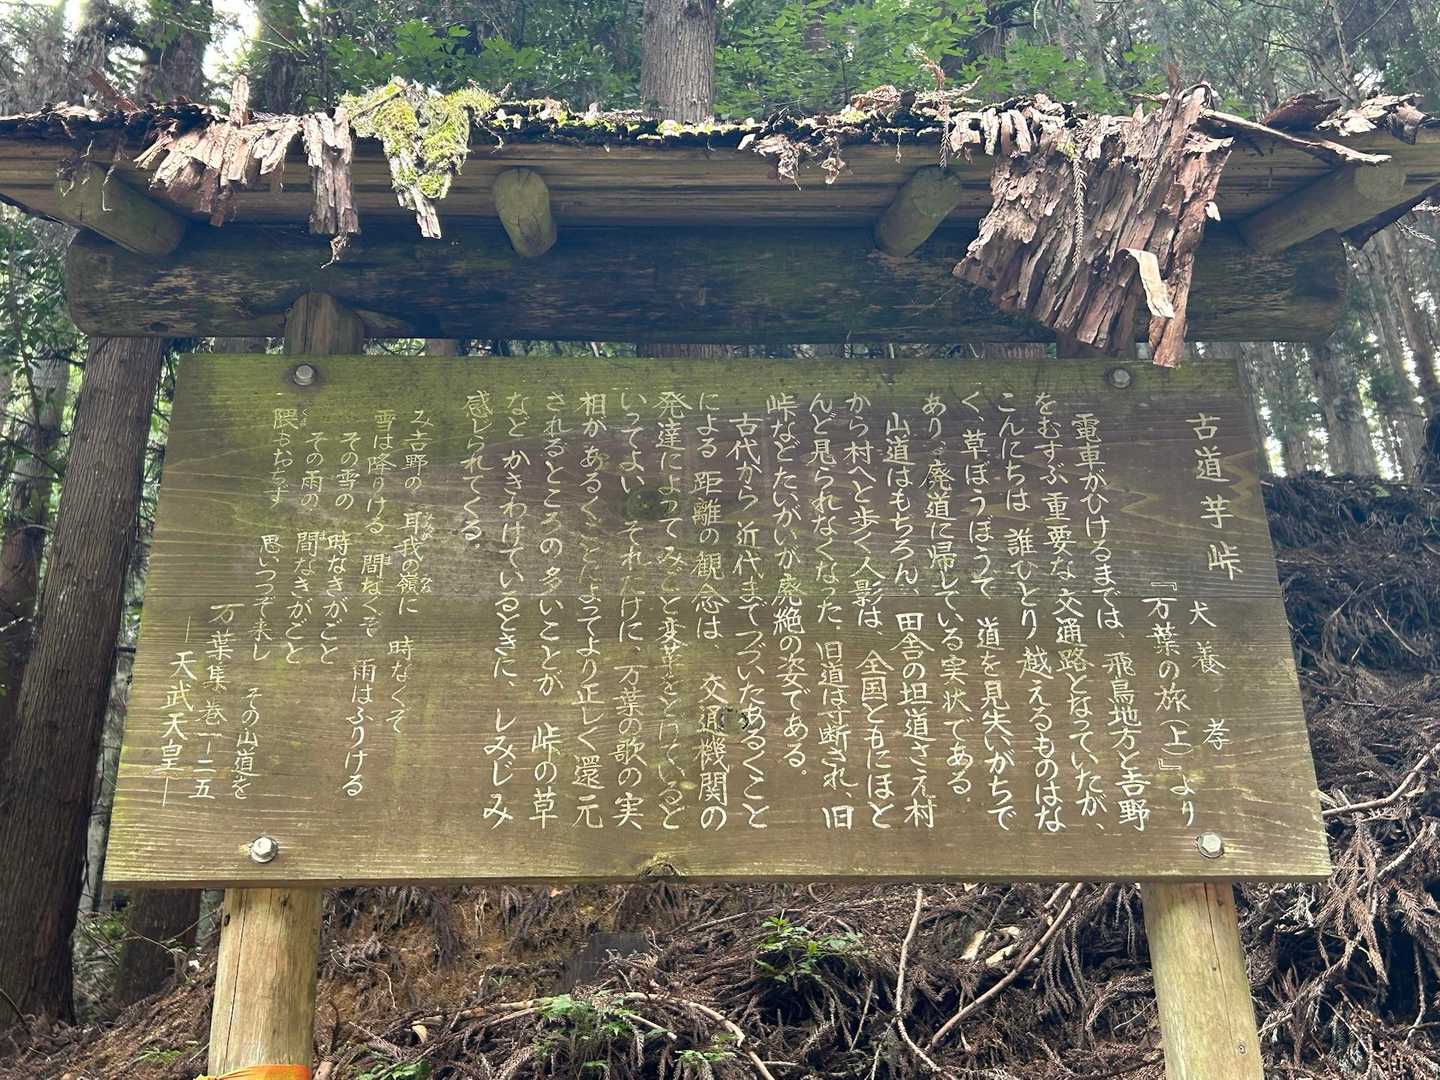 古道芋峠
犬養 孝
『万葉の旅(上)』より
電車がひけるまでは、飛鳥地方と吉野
をむすぶ重要な交通路となっていたが、
こんにちは 誰ひとり越えるものはな
く 草ぼうぼうで 道を見失いがちで
あり、廃道に帰している実状である.
山道はもちろん、田舎の坦道さえ村
から村へと歩く人影は、全国ともにほと
んど見られなくなった. 旧道は寸断され、旧
峠などたいがいが廃絶の姿である.
古代から近代までつづいたあるくこと
による 距離の観念は、交通機関の
発達によってみごと変革をとげていると
いってよい. それだけに、万葉の歌の実
相があるくことによってより正しく還元
されるところの多いことが 峠の草
など かきわけているときに、しみじみ
感じられてくる。
み吉野の 耳我の嶺に 時なくぞ
みみが みね
雪は降りける 間なくぞ 雨はふりける
その雪の 時なきがごと
その雨の 間なきがごと
隈もおちず 思いつつぞ来し その山道を
くま
万葉集 巻一‐二五
―天武天皇―